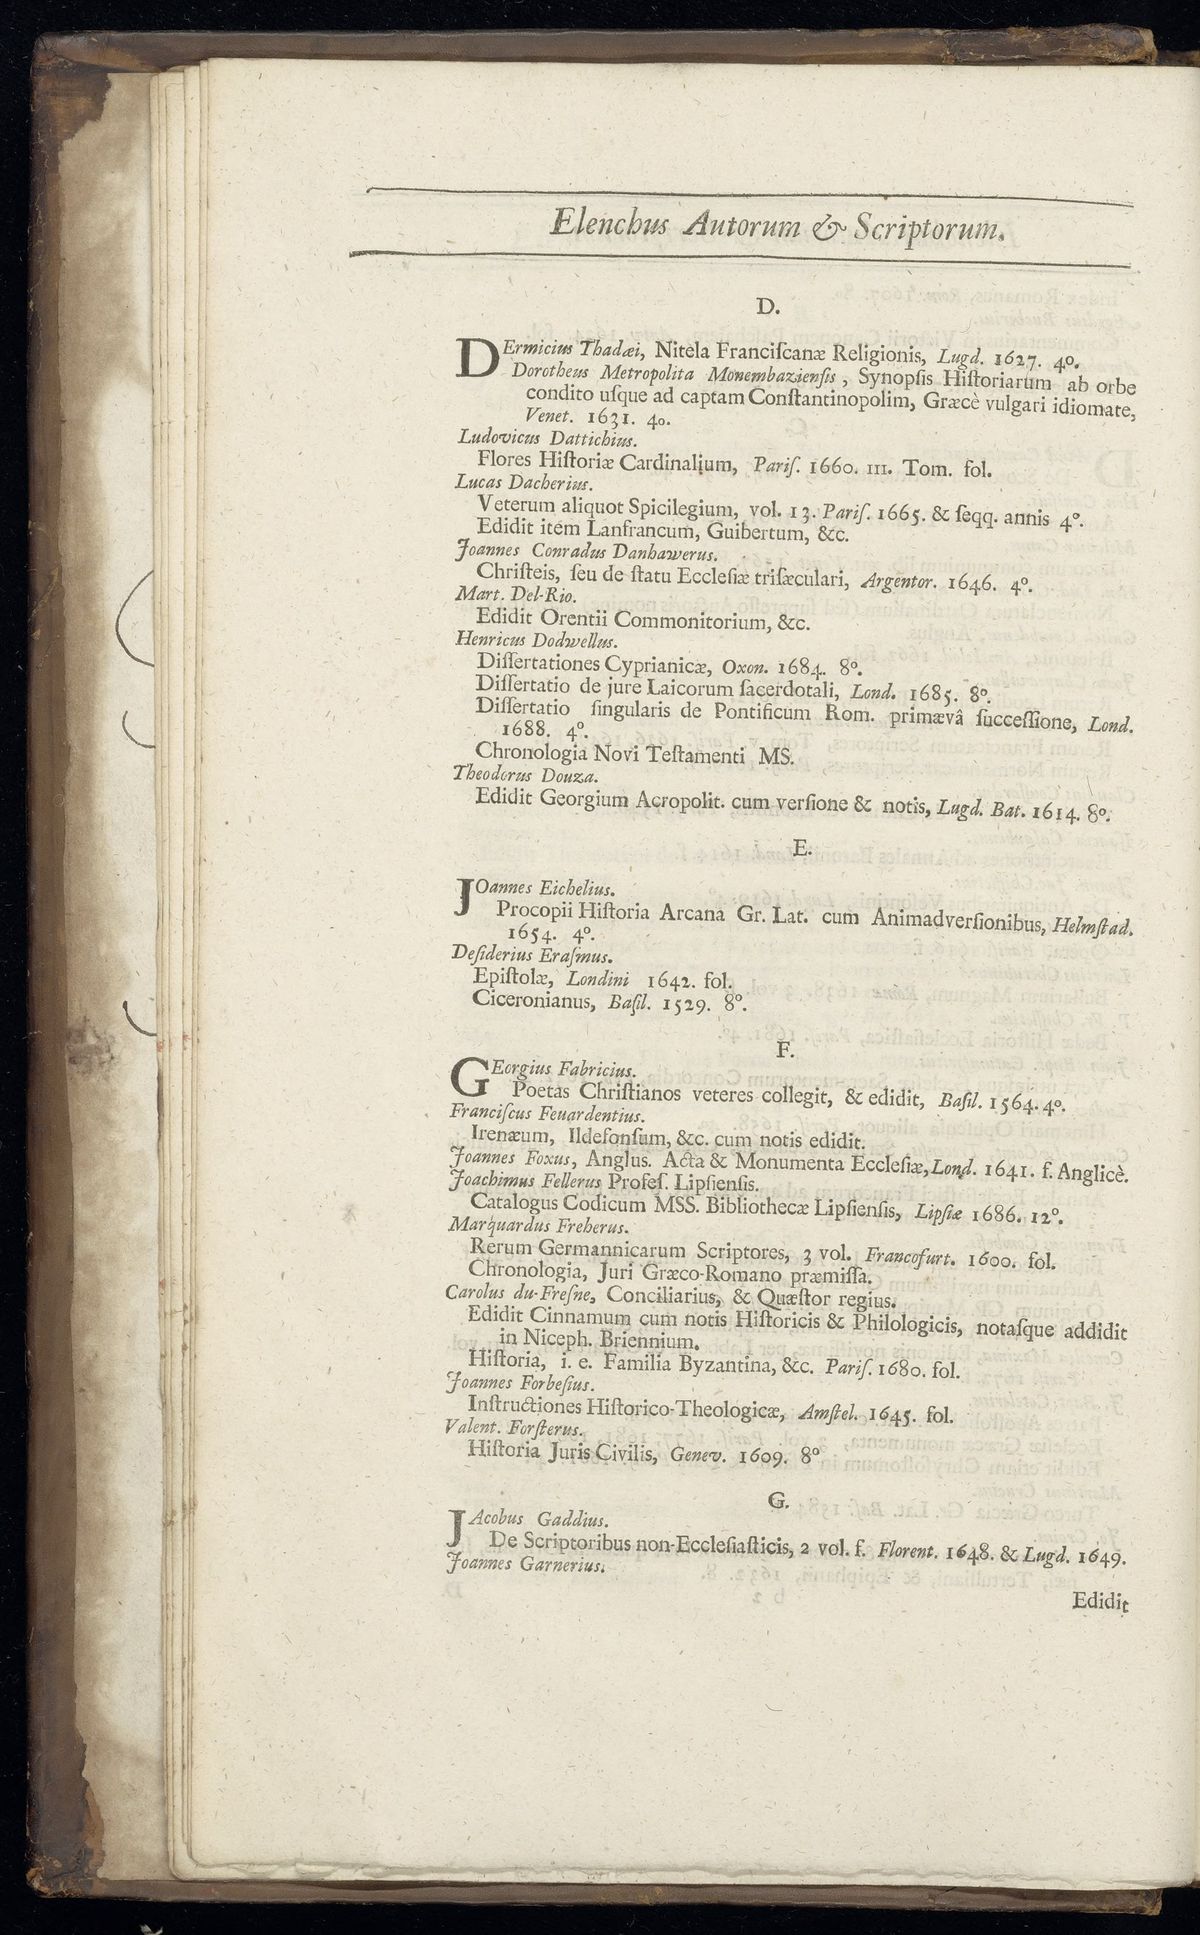 Elenchus Autorum & Scriptorum.
D.
DErmicius Thadæi, Nitela Franciſcanæ Religionis, Lugd. 1627. 4o.
Dorotheus Metropolita Monembazienſis, Synopſis Hiſtoriarum ab orbe
condito uſque ad captam Conſtantinopolim, Græcè vulgari idiomate,
Venet. 1631. 4o.
Ludovicus Dattichius.
Flores Hiſtoriæ Cardinalium, Pariſ. 1660. III. Tom. fol.
Lucas Dacherius.
Veterum aliquot Spicilegium, vol. 13. Pariſ. 1665. & ſeqq. annis 4º.
Edidit item Lanfrancum, Guibertum, &c.
Joannes Conradus Danhawerus.
Chriſteis, ſeu de ſtatu Eccleſiæ triſæculari, Argentor. 1646. 4º.
Mart. Del-Rio.
Edidit Orentii Commonitorium, &c.
Henricus Dodwellus.
Diſſertationes Cyprianicæ, Oxon. 1684. 8º.
Diſſertatio de jure Laicorum ſacerdotali, Lond. 1685. 8º.
Diſſertatio ſingularis de Pontificum Rom. primævâ ſucceſſione, Lond.
1688. 4º.
Chronologia Novi Teſtamenti MS.
Theodorus Douza.
Edidit Georgium Acropolit. cum verſione & notis, Lugd. Bat. 1614. 8º.
E.
JOannes Eichelius.
Procopii Hiſtoria Arcana Gr. Lat. cum Animadverſionibus, Helmſtad.
1654. 4º.
Deſiderius Eraſmus.
Epiſtolæ, Londini 1642. fol.
Ciceronianus, Baſil. 1529. 8º.
F.
GEorgius Fabricius.
Poetas Chriſtianos veteres collegit, & edidit, Baſil. 1564. 4º.
Franciſcus Feuardentius.
Irenæum, Ildefonſum, &c. cum notis edidit.
Joannes Foxus, Anglus. Acta & Monumenta Eccleſiæ, Lond. 1641. f. Anglicè.
Joachimus Fellerus Profeſ. Lipſienſis.
Catalogus Codicum MSS. Bibliothecæ Lipſienſis, Lipſiæ 1686. 12º.
Marquardus Freherus.
Rerum Germannicarum Scriptores, 3 vol. Francofurt. 1600. fol.
Chronologia, Juri Græco-Romano præmiſſa.
Carolus du-Freſne, Conciliarius, & Quæſtor regius.
Edidit Cinnamum cum notis Hiſtoricis & Philologicis, notaſque addidit
in Niceph. Briennium.
Hiſtoria, i. e. Familia Byzantina, &c. Pariſ. 1680. fol.
Joannes Forbeſius.
Inſtructiones Hiſtorico-Theologicæ, Amſtel. 1645. fol.
Valent. Forſterus.
Hiſtoria Juris Civilis, Genev. 1609. 8º
G.
JAcobus Gaddius.
De Scriptoribus non-Eccleſiaſticis, 2 vol. f. Florent. 1648. & Lugd. 1649.
Joannes Garnerius.
Edidit